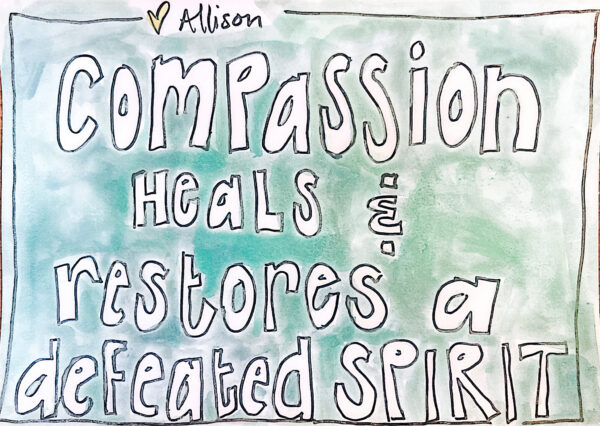 Allison
COMPASSION
HEALS &
restores a
defeated SPIRIT